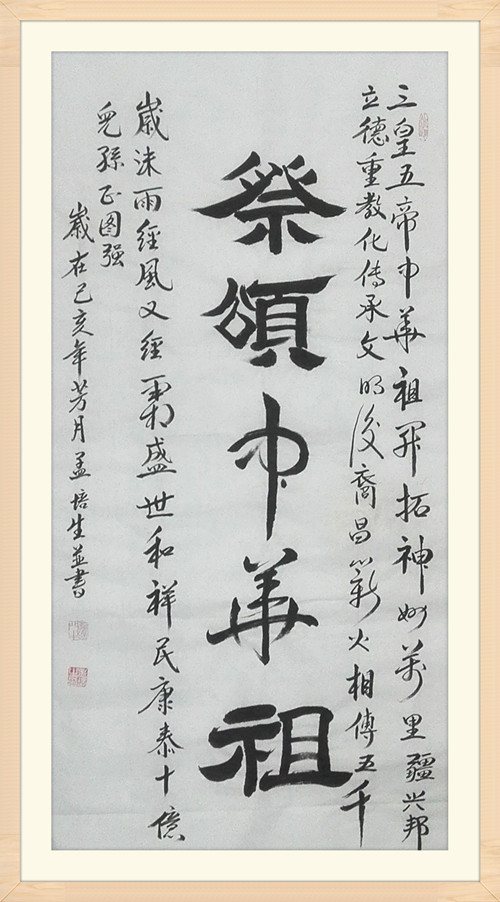 三皇五帝中華祖开拓神州萬里疆兴邦
立德重教化传承文明後裔昌薪火相傳五千
祭頌中華祖
歲沐雨經風又經霜盛世和祥民康泰十億
兒孫正图强
歲在己亥年芳月孟培生並書